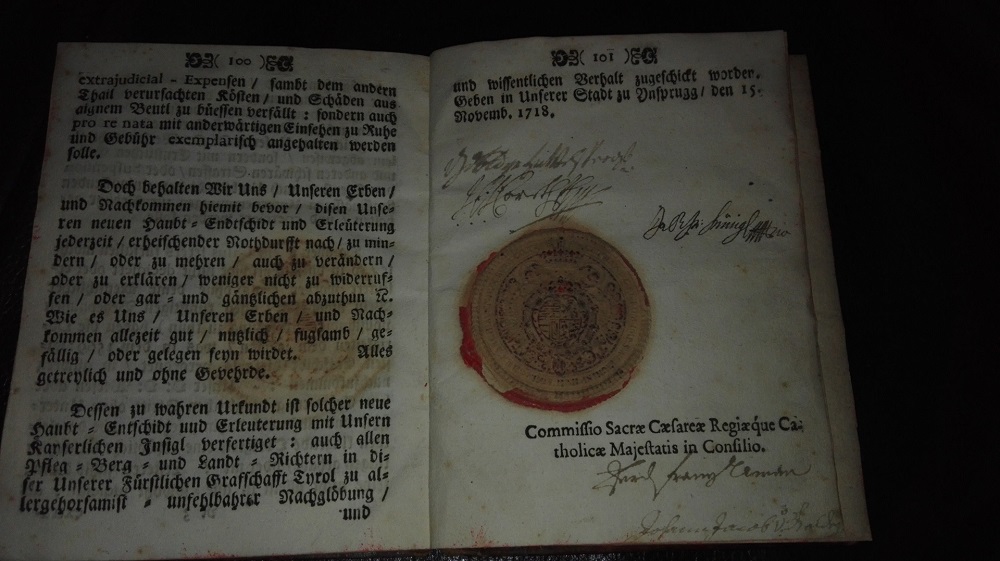 ( 100 )
extrajudicial - Expensen / sambt dem andern
Thail verursachten Kösten / und Schäden aus
aignem Beutl zu büessen verfällt : sondern auch
pro re nata mit anderwärtigen Einsehen zu Ruhe
und Gebühr exemplarisch angehalten werden
solle.
Doch behalten Wir Uns / Unseren Erben /
und Nachkommen hiemit bevor / disen Unse-
ren neuen Haubt-Endtschidt und Erleüterung
jederzeit / erheischender Nothdurfft nach / zu min-
dern / oder zu mehren / auch zu verändern /
oder zu erklären / weniger nicht zu widerruf-
fen / oder gar - und gäntzlichen abzuthun ꝛc.
Wie es Uns / Unseren Erben / und Nach-
kommen allezeit gut / nutzlich / fugsamb / ge-
fällig / oder gelegen seyn wirdet. Alles
getreylich und ohne Gevehrde.
Dessen zu wahren Urkundt ist solcher neue
Haubt - Entschidt und Erleuterung mit Unsern
Kayserlichen Insigl verfertiget : auch allen
Pfleg - Berg - und Landt - Richtern in di-
ser Unserer Fürstlichen Graffschafft Tyrol zu al-
lergehorsamist - unfehlbahrer Nachglöbung /
und
( 101 )
und wissentlichen Verhalt zugeschickt worden.
Geben in Unserer Stadt zu Ynsprugg / den 15.
Novemb. 1718.
Commissio Sacræ Cæsareæ Regiæq́ue Ca-
tholicæ Majestatis in Consilio.
Franz
Johann Jacob